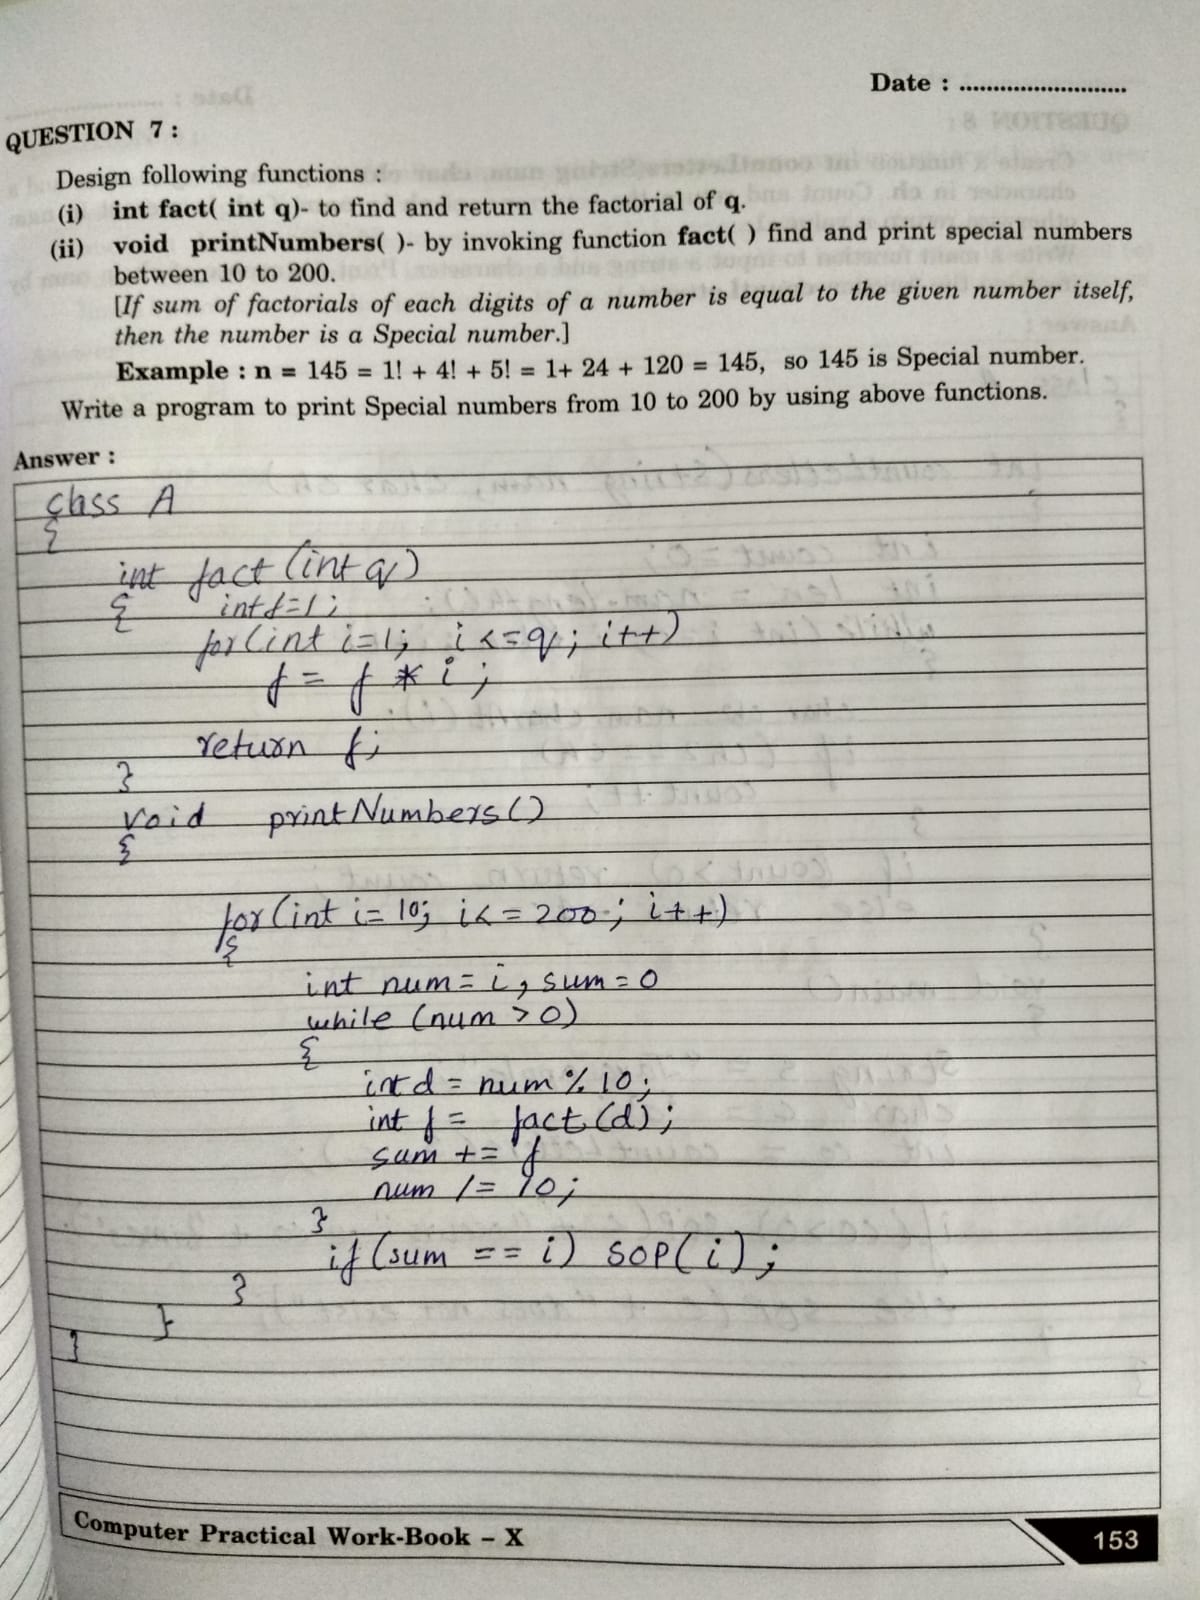 Date : ..........................
QUESTION 7 :
Design following functions :
(i) int fact( int q)- to find and return the factorial of q.
(ii) void printNumbers( )- by invoking function fact( ) find and print special numbers
between 10 to 200.
[If sum of factorials of each digits of a number is equal to the given number itself,
then the number is a Special number.]
Example : n = 145 = 1! + 4! + 5! = 1+ 24 + 120 = 145, so 145 is Special number.
Write a program to print Special numbers from 10 to 200 by using above functions.
Answer :
class A
{
int fact (int q)
{ int f=1;
for(int i=1; i<=q; i++)
f = f * i;
return f;
}
void printNumbers()
{
for(int i=10; i<=200; i++)
{
int num=i, sum=0
while (num >0)
{
int d = num % 10;
int f = fact(d);
sum += f
num /= 10;
}
if(sum == i) SOP(i);
}
}
}
Computer Practical Work-Book – X
153